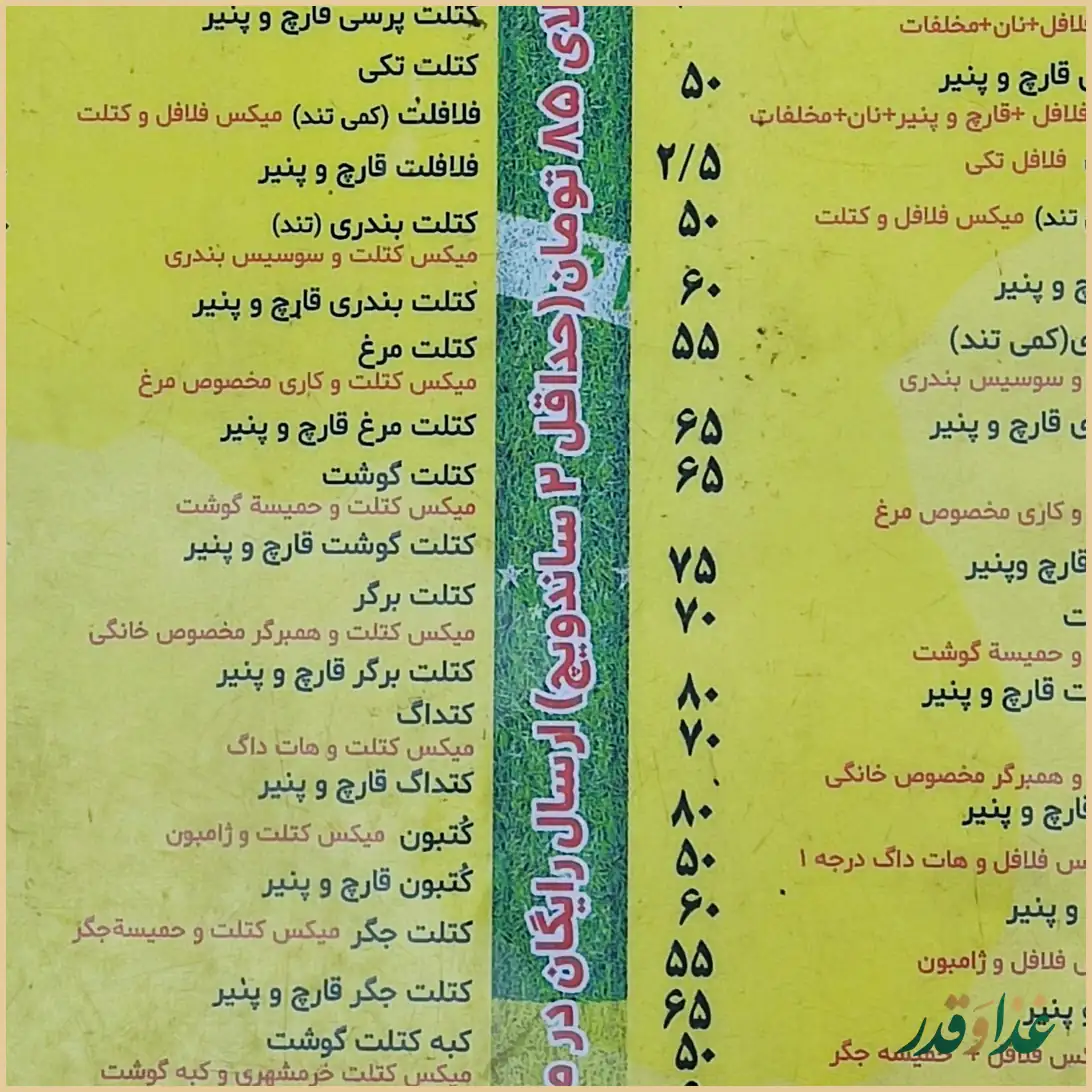 فلافل+نان+مخلفات
قارچ و پنیر ۵۰
فلافل +قارچ و پنیر+نان+مخلفات
فلافل تکی ۲/۵
تند) میکس فلافل و کتلت ۵۰
و پنیر ۶۰
(کمی تند) ۵۵
و سوسیس بندری
قارچ و پنیر ۶۵
۶۵
و کاری مخصوص مرغ
قارچ وپنیر ۷۵
۷۰
و حمیسة گوشت
قارچ و پنیر ۸۰
۷۰
و همبرگر مخصوص خانگی
قارچ و پنیر ۸۰
فلافل و هات داگ درجه ۱ ۵۰
و پنیر ۶۰
فلافل و ژامبون ۵۵
و پنیر ۶۵
میکس فلافل + حمیسه جگر ۵۰
غذا و قدر
۸۵ تومان(حداقل ۲ ساندویچ) ارسال رایگان در
کتلت پرسی قارچ و پنیر
کتلت تکی
فلافلت (کمی تند) میکس فلافل و کتلت
فلافلت قارچ و پنیر
کتلت بندری (تند)
میکس کتلت و سوسیس بندری
کتلت بندری قارچ و پنیر
کتلت مرغ
میکس کتلت و کاری مخصوص مرغ
کتلت مرغ قارچ و پنیر
کتلت گوشت
میکس کتلت و حمیسة گوشت
کتلت گوشت قارچ و پنیر
کتلت برگر
میکس کتلت و همبرگر مخصوص خانگی
کتلت برگر قارچ و پنیر
کتداگ
میکس کتلت و هات داگ
کتداگ قارچ و پنیر
کُتبون میکس کتلت و ژامبون
کُتبون قارچ و پنیر
کتلت جگر میکس کتلت و حمیسةجگر
کتلت جگر قارچ و پنیر
کبه کتلت گوشت
میکس کتلت خرمشهری و کبه گوشت